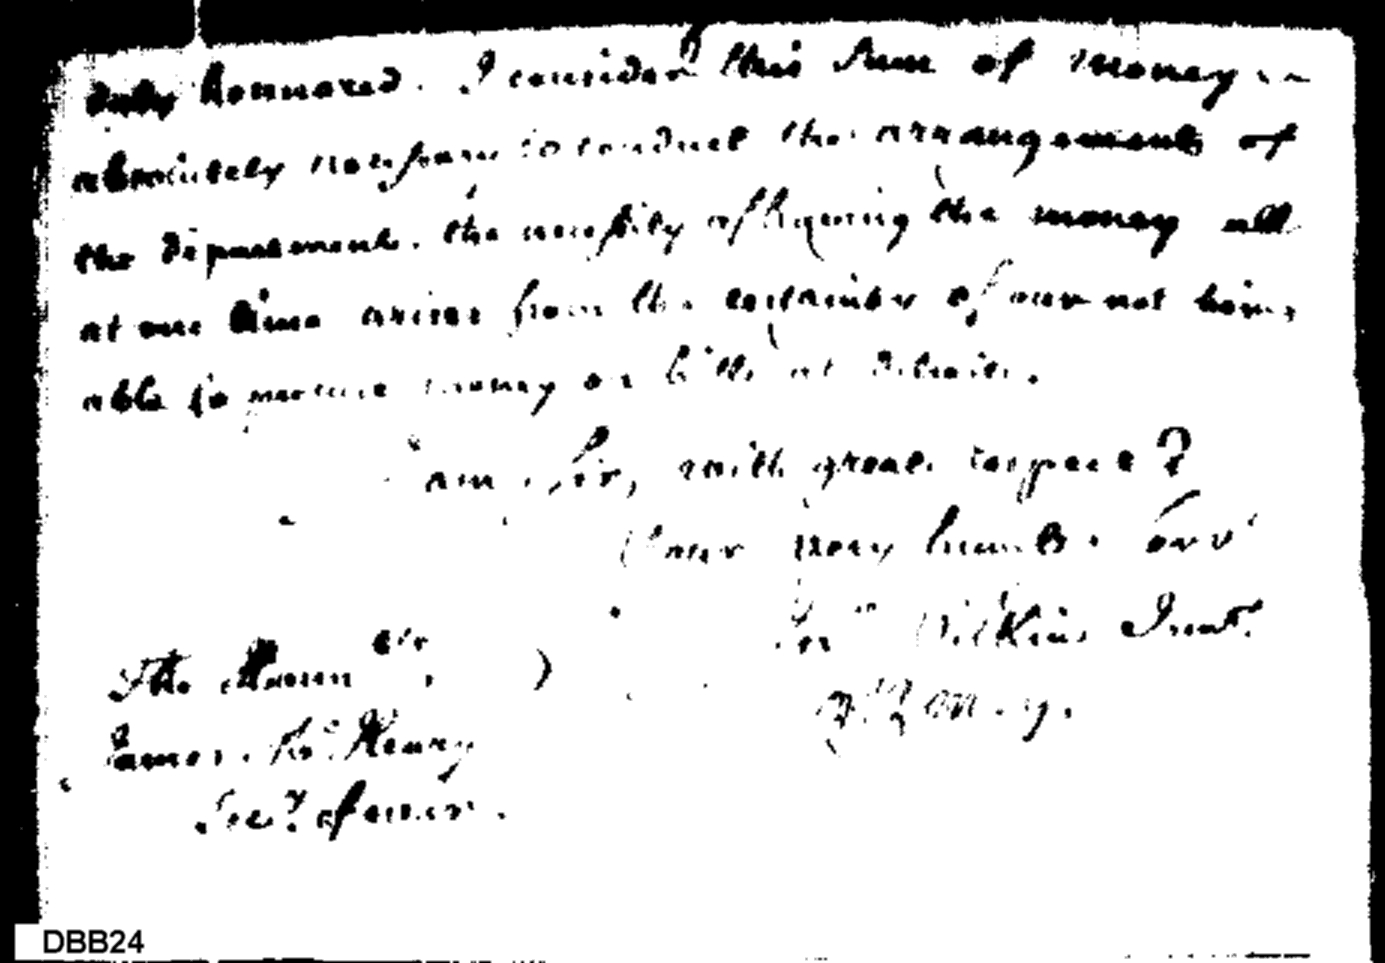 duly honnored. I consider this sum of money as
absolutely necessary to conduct the arrangements of
the department. the necessity of having the money all
at one time arises from the certainty of our not being
able to procure money on bills at Detroit.
I am, Sir, with great respect
Your very humble Servt
Jno Wilkins Junr.
Q. M. Army.
The Honnble
James McHenry
Secy of war.
DBB24